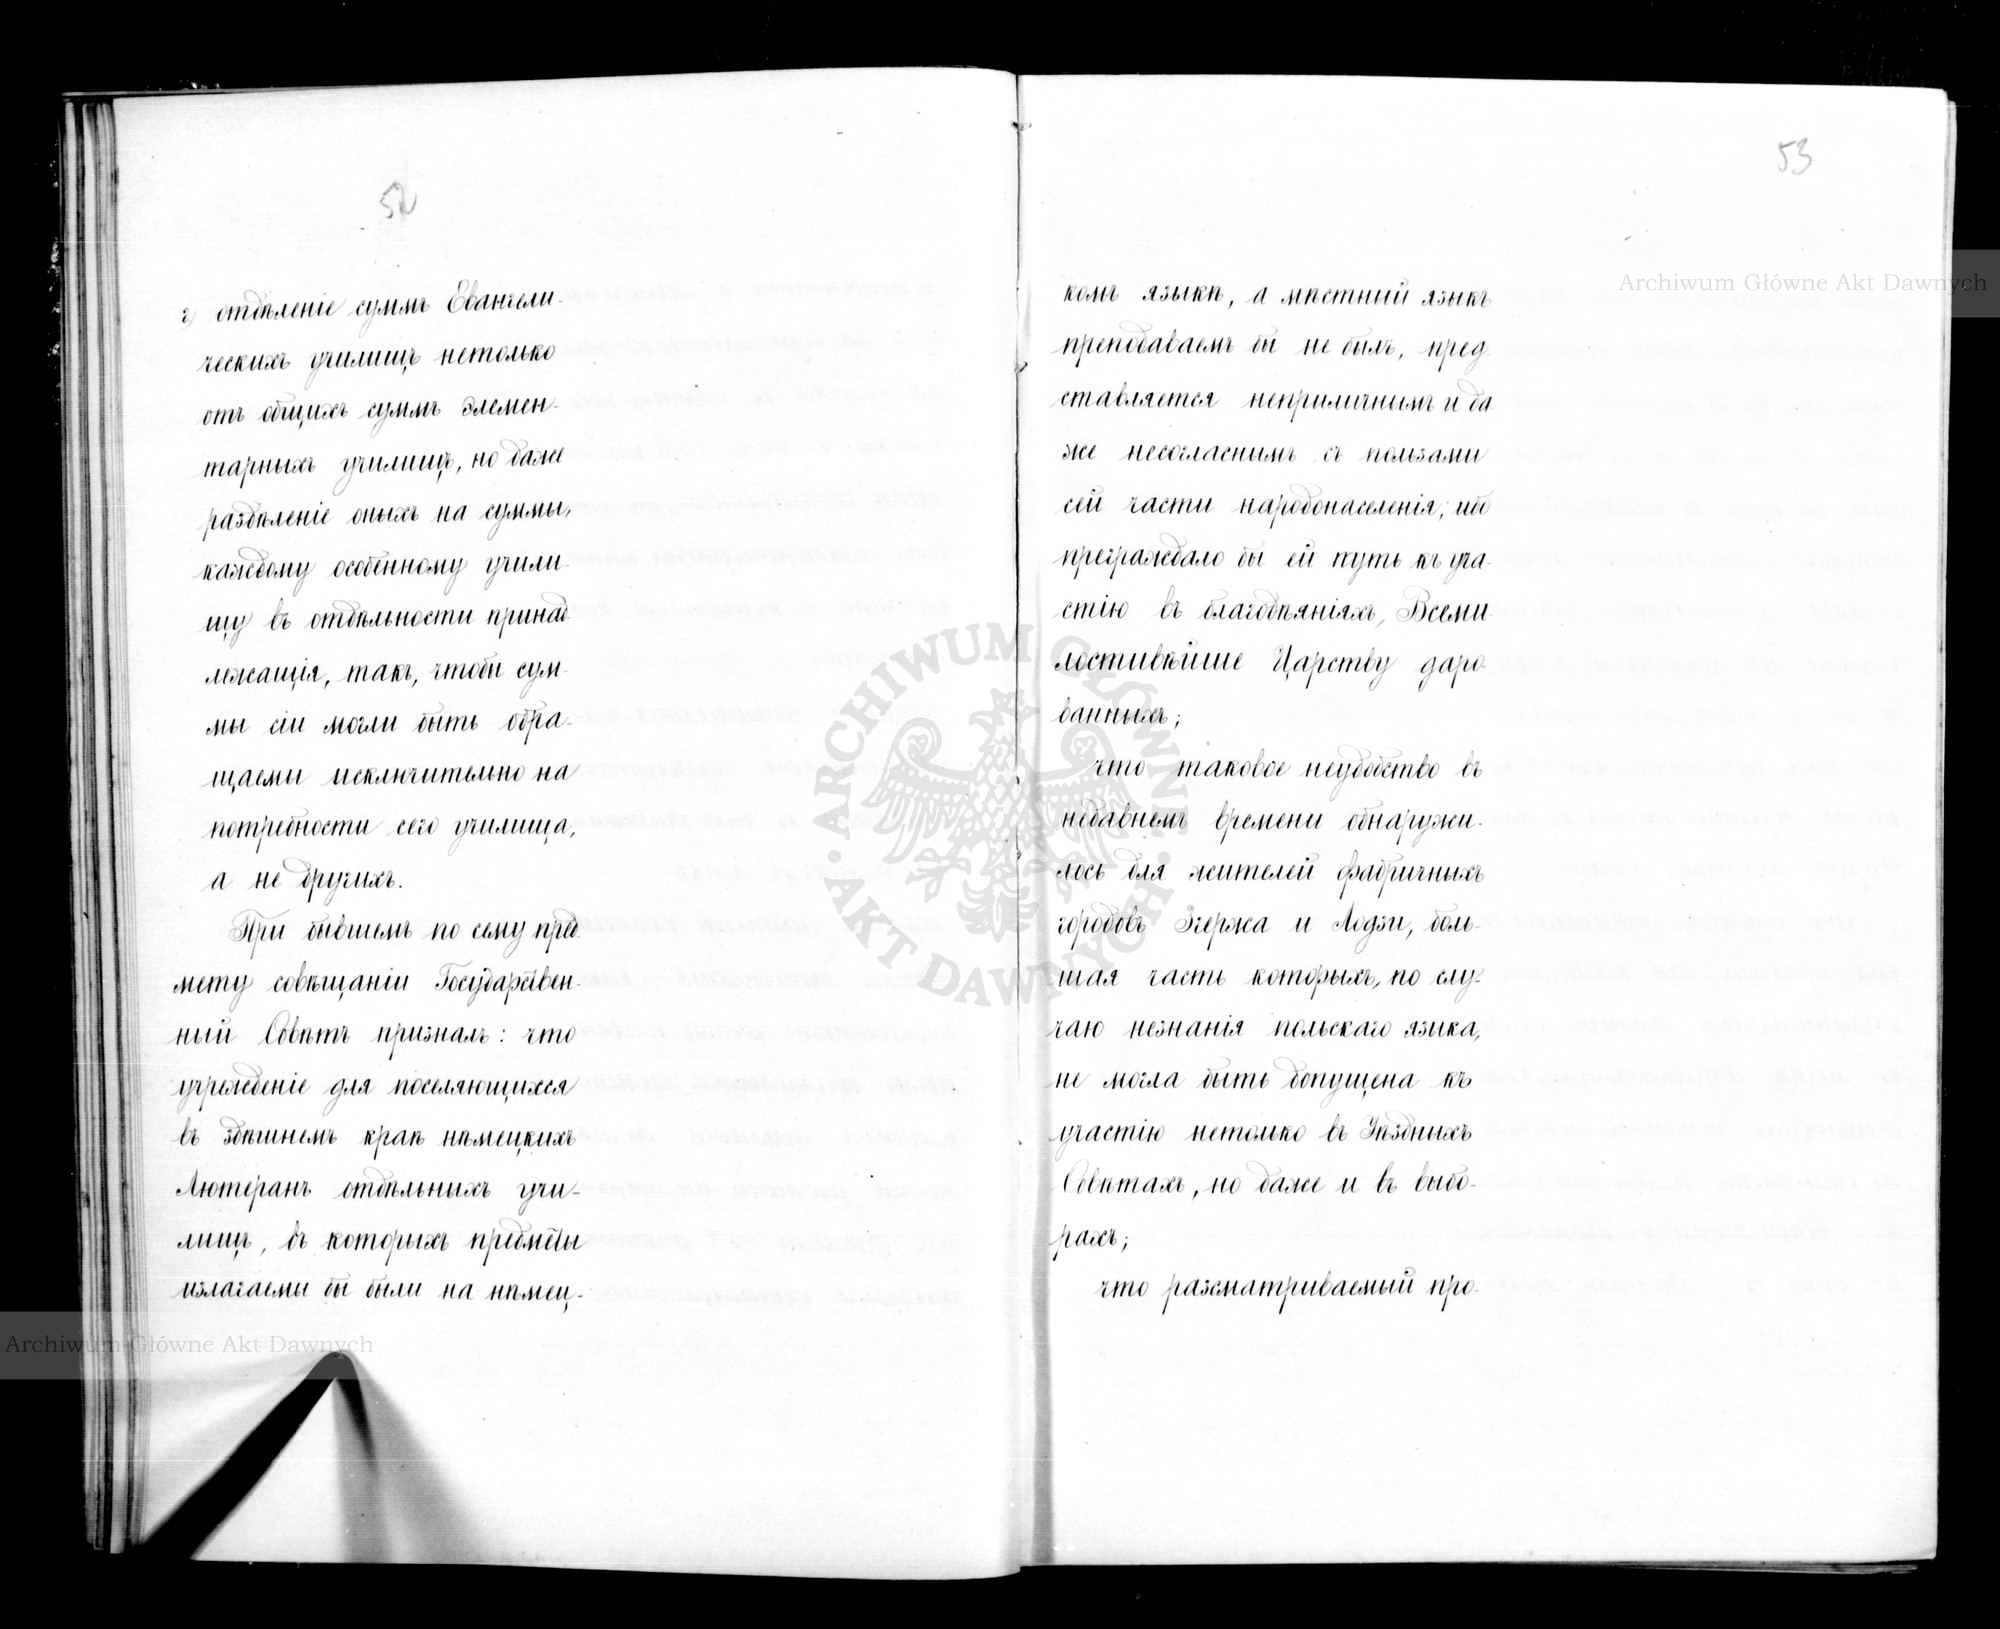 52
г, отдѣленіе суммъ Евангели-
ческихъ училищъ нетолько
отъ общихъ суммъ элемен-
тарныхъ училищъ, но даже
раздѣленіе оныхъ на суммы,
каждому особенному учили-
щу въ отдѣльности принад-
лежащія, такъ, чтобы сум-
мы сіи могли быть обра-
щаемы исключительно на
потребности сего училища,
а не другихъ.
При бывшемъ по сему пред-
мету совѣщаніи Государствен-
ный Совѣтъ призналъ: что
учрежденіе для поселяющихся
въ здѣшнемъ краѣ нѣмецкихъ
Лютеранъ отдѣльныхъ учи-
лищъ, въ которыхъ предметы
излагаемы бы были на нѣмец-
53
комъ языкѣ, а мѣстный языкъ
преподаваемъ бы не былъ, пред-
ставляется неприличнымъ и да
же несогласнымъ съ пользами
сей части народонаселенія; ибо
преграждало бы ей путь къ уча-
стію въ благодѣяніяхъ, Всеми-
лостивѣйше Царству даро-
ванныхъ;
что таковое неудобство въ
недавнемъ времени обнаружи-
лось для жителей фабричныхъ
городовъ Згержа и Лодзи, боль-
шая часть которыхъ, по слу-
чаю незнанія польскаго языка,
не могла быть допущена къ
участію нетолько въ Уѣздныхъ
Совѣтахъ, но даже и въ выбо-
рахъ;
что разсматриваемый про-
Archiwum Główne Akt Dawnych
Archiwum Główne Akt Dawnych
ARCHIWUM GŁÓWNE
AKT DAWNYCH